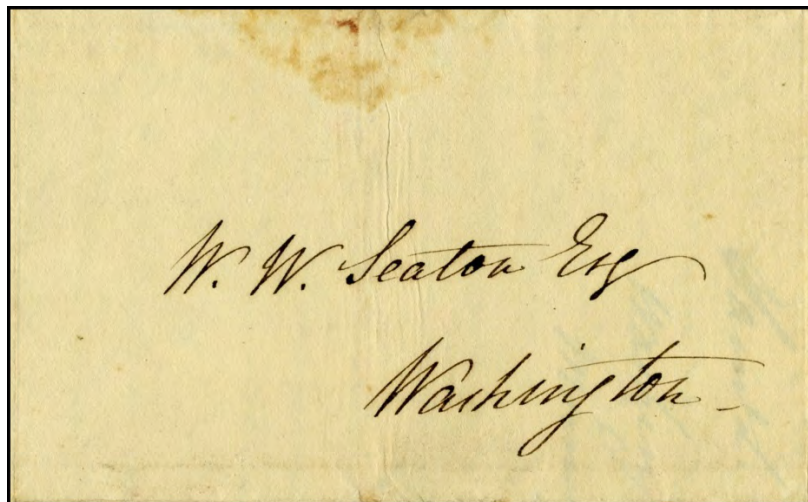 W. W. Seaton Esq
Washington